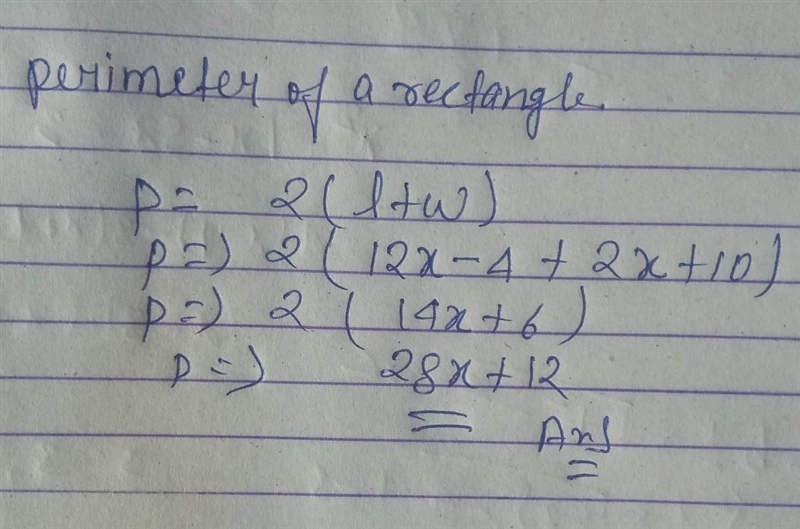 perimeter of a rectangle.
p = 2(l+w)
p => 2(12x-4+2x+10)
p => 2(14x+6)
p => 28x+12
Ans